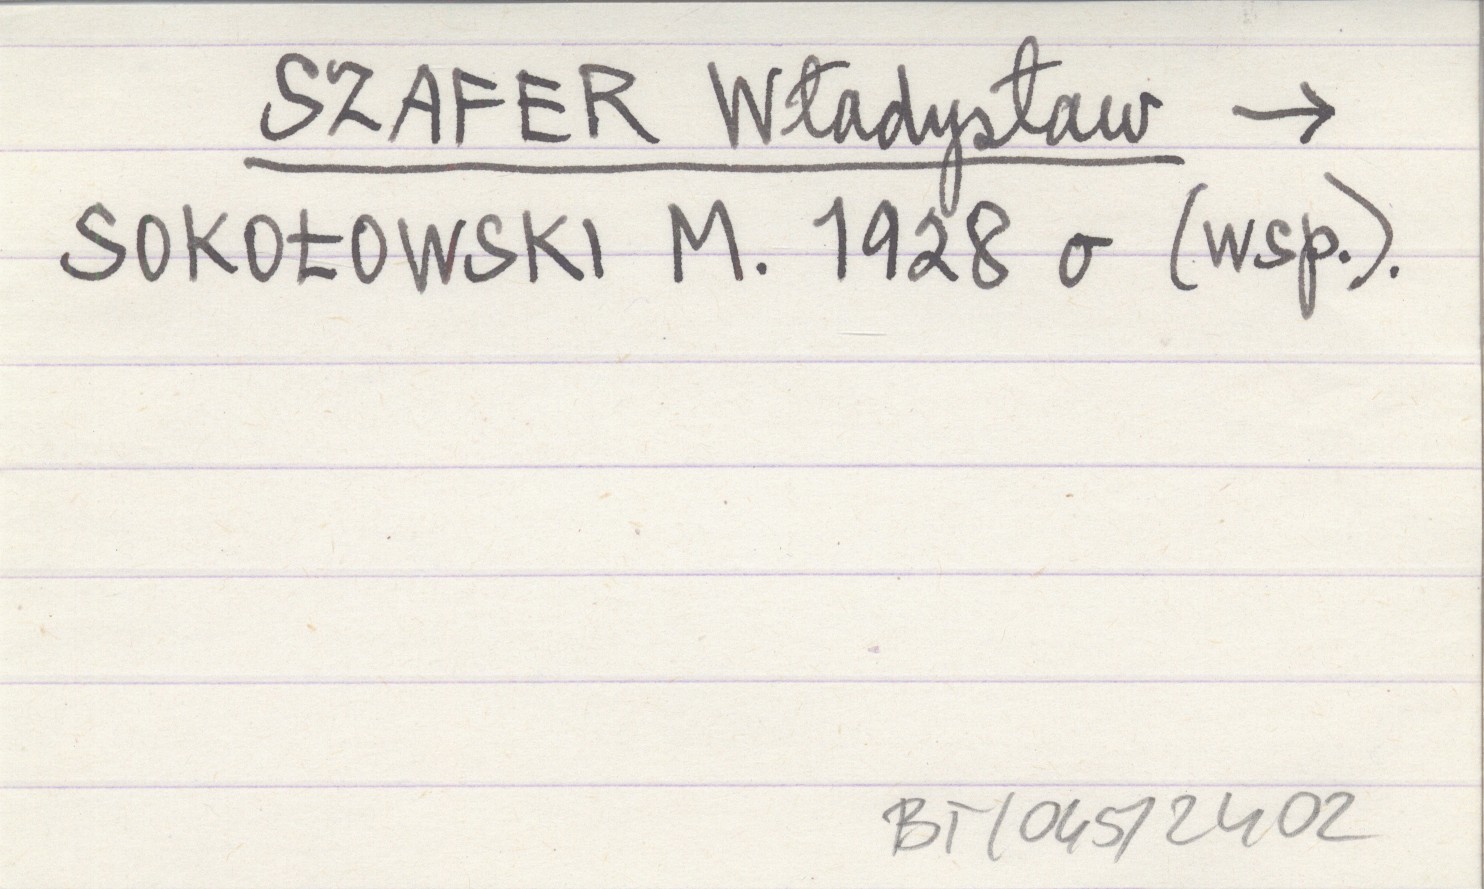 SZAFER Władysław →
SOKOŁOWSKI M. 1928 o (wsp.).
BT/045/2402